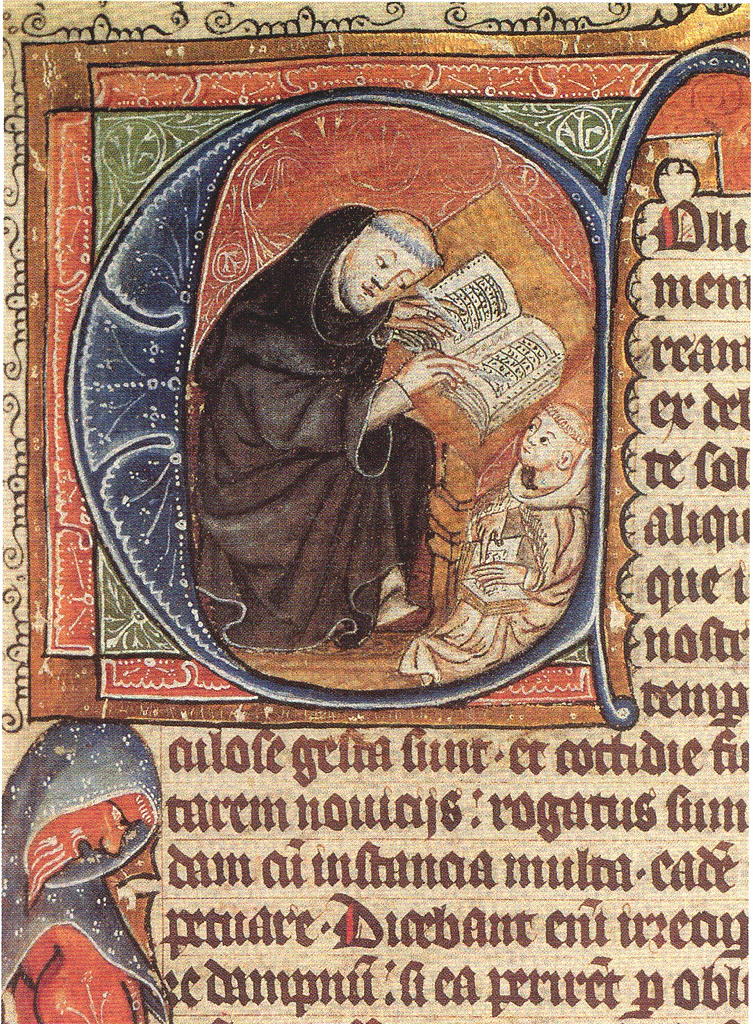 C olli
men
rean
ex deb
te sol
aliqu
que i
nostr
temp
culose gesta sunt · et cottidie fi
tarem nouicijs : rogatus sum
dam cū instancia multa · eadē
petuare · Dicebant enī irrecup
le dampnū : si ea perirēt ꝑ obli